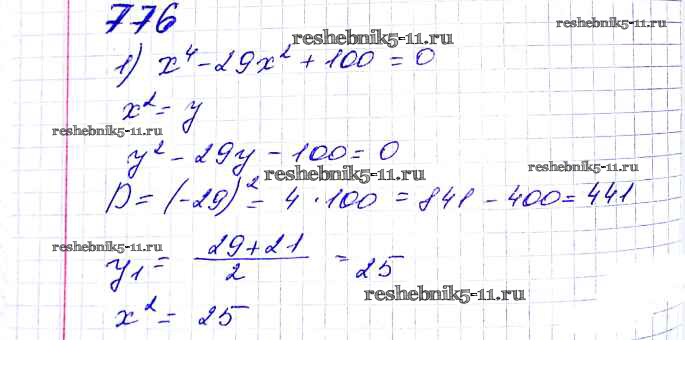 776
reshebnik5-11.ru
1) x⁴ - 29x² + 100 = 0
x² = y
reshebnik5-11.ru
y² - 29y - 100 = 0
reshebnik5-11.ru
reshebnik5-11.ru
D = (-29)² - 4 · 100 = 841 - 400 = 441
reshebnik5-11.ru
y₁ = (29+21)/2 = 25
reshebnik5-11.ru
x² = 25